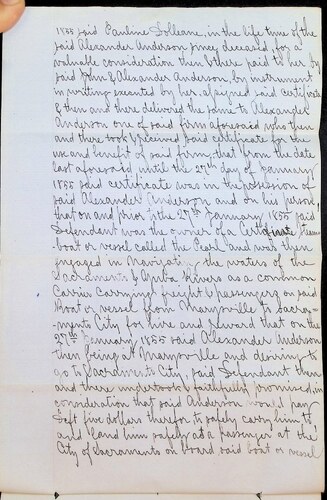 1855 said Pauline Solleane, in the life time of the
said Alexander Anderson since deceased, for a
valuable consideration then & there paid to her by
said John & Alexander Anderson, by instrument
in writing executed by her, assigned said certificate
& then and there delivered the same to Alexander
Anderson one of said firm aforesaid who then
and there took & received said certificate for the
use and benefit of said firm, that from the date
last aforesaid until the 27th day of January
1855 said certificate was in the possession of
said Alexander Anderson and on his person,
that on and prior to the 27th January 1855 said
Defendant was the owner of a certain steam
-boat or vessel called the Pearl and was then
engaged in Navigating the waters of the
Sacramento & Yuba Rivers as a common
Carrier carrying freight & passengers on said
Boat or vessel from Marysville to Sacra-
-mento City for hire and reward that on the
27th January 1855 said Alexander Anderson
then being at Marysville and desiring to
go to Sacramento City, said Defendant then
and there undertook & faithfully promised, in
consideration that said Anderson would pay
Deft five dollars therefor to safely carry him to
and land him safely as a passenger at the
City of Sacramento on board said boat or vessel